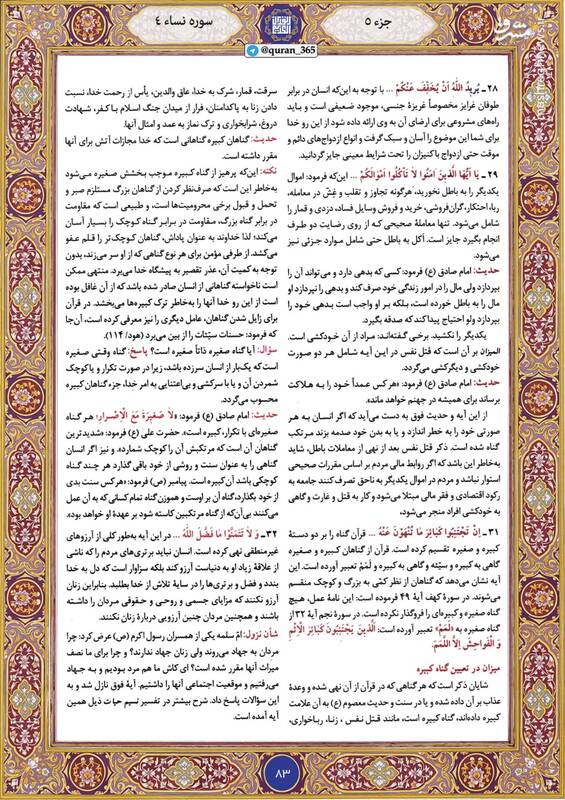 جزء ۵
سوره نساء ٤
@quran_365
مشرق
۲۸ ـ یُریدُ اللّٰهُ اَنْ یُخَفِّفَ عَنْکُمْ ... با توجه به این‌که انسان در برابر
طوفان غرایز مخصوصاً غریزهٔ جنسی، موجود ضعیفی است و باید
راه‌های مشروعی برای ارضای آن به وی ارائه داده شود از این رو خدا
برای شما این موضوع را آسان و سبک گرفت و انواع ازدواج‌های دائم و
موقت حتی ازدواج باکنیزان را تحت شرایط معینی جایز گردانید.
۲۹ ـ یا اَیُّهَا الَّذینَ امَنُوا لا تَأکُلُوا اَمْوالَکُمْ ... این‌که فرمود: اموال
یکدیگر را به باطل نخورید، هرگونه تجاوز و تقلب و غِشّ در معامله،
ربا، احتکار، گران‌فروشی، خرید و فروش وسایل فساد، دزدی و قمار را
شامل می‌شود. تنها معاملهٔ صحیحی که از روی رضایت دو طرف
انجام بگیرد جایز است. اَکل به باطل حتی شامل موارد جزئی نیز
می‌شود.
حدیث: امام صادق (ع) فرمود: کسی که بدهی دارد و می‌تواند آن را
بپردازد ولی مال را در امور زندگی خود صرف کند و بدهی را نپردازد او
مال را به باطل خورده است، بلکه بر او واجب است بدهی خود را
بپردازد ولو احتیاج پیدا کند که صدقه بگیرد.
یکدیگر را نکشید. برخی گفته‌اند: مراد از آن خودکشی است.
المیزان بر آن است که قتل نفس در این آیه شامل هر دو صورت
خودکشی و دیگرکشی می‌گردد.
حدیث: امام صادق (ع) فرمود: «هرکس عمداً خود را به هلاکت
برساند برای همیشه در جهنم خواهد ماند».
از این آیه و حدیث فوق به دست می‌آید که اگر انسان به هر
صورتی خود را به خطر اندازد و یا به بدن خود صدمه بزند مرتکب
گناه شده است. ذکر قتل نفس بعد از نهی از معاملات باطل، شاید
به‌خاطر این باشد که اگر روابط مالی مردم بر اساس مقررات صحیحی
استوار نباشد و مردم در اموال یکدیگر به ناحق تصرف کنند جامعه به
رکود اقتصادی و فقر مالی مبتلا می‌شود و کار به قتل و غارت و گاهی
به خودکشی افراد منجر می‌شود.
۳۱ ـ اِنْ تَجْتَنِبُوا کَبائِرَ ما تُنْهَوْنَ عَنْهُ ... قرآن گناه را بر دو دستهٔ
کبیره و صغیره تقسیم کرده است. قرآن از گناهان کبیره و صغیره
گاهی به کبیره و سیّئه و گاهی به کبیره و لَمَمْ تعبیر آورده است. این
آیه نشان می‌دهد که گناهان از نظر کمّی به بزرگ و کوچک منقسم
می‌شوند. در سورهٔ کهف آیهٔ ۴۹ فرموده است: این نامهٔ عمل، هیچ
گناه صغیره و کبیره‌ای را فروگذار نکرده است. در سورهٔ نجم آیهٔ ۳۲ از
گناه صغیره به «لَمَمْ» تعبیر آورده است: اَلَّذینَ یَجْتَنِبُونَ کَبائِرَ الْاِثْمِ
وَ الْفَواحِشَ اِلَّا اللَّمَمَ.
میزان در تعیین گناه کبیره
شایان ذکر است که هر گناهی که در قرآن از آن نهی شده و وعدهٔ
عذاب بر آن داده شده و یا در سنت و حدیث معصوم (ع) به آن علامت
کبیره داده‌اند، گناه کبیره است، مانند قتل نفس ، زنا، رباخواری،
سرقت، قمار، شرک به خدا، عاق والدین، یأس از رحمت خدا، نسبت
دادن زنا به پاکدامنان، فرار از میدان جنگ اسلام با کفر، شهادت
دروغ، شرابخواری و ترک نماز به عمد و امثال آنها.
حدیث: گناهان کبیره گناهانی است که خدا مجازات آتش برای آنها
مقرر داشته است.
نکته: این‌که پرهیز از گناه کبیره موجب بخشش صغیره می‌شود
به‌خاطر این است که صرف‌نظر کردن از گناهان بزرگ مستلزم صبر و
تحمل و قبول برخی محرومیت‌ها است، و طبیعی است که مقاومت
در برابر گناه بزرگ، مقاومت در برابر گناه کوچک را بسیار آسان
می‌کند؛ لذا خداوند به عنوان پاداش، گناهان کوچک‌تر را قلم عفو
می‌کشد. از طرفی مؤمن برای هر نوع گناهی که از او سر می‌زند، بدون
توجه به کمیت آن، عذر تقصیر به پیشگاه خدا می‌برد. منتهی ممکن
است ناخواسته گناهانی از انسان صادر شده باشد که از آن غافل بوده
است از این رو خدا آنها را به‌خاطر ترک کبیره‌ها می‌بخشد. در قرآن
برای زایل شدن گناهان، عامل دیگری را نیز معرفی کرده است، آن‌جا
که فرمود: حسنات سیّئات را از بین می‌برد (هود/ ۱۱۴).
سؤال: آیا گناه صغیره ذاتاً صغیره است؟ پاسخ: گناه وقتی صغیره
است که یک‌بار از انسان سرزده باشد، زیرا در صورت تکرار و یا کوچک
شمردن آن و یا با سرکشی و بی‌اعتنایی به امر خدا، جزء گناهان کبیره
محسوب می‌گردد.
حدیث: امام صادق (ع) فرمود: «لا صَغیرَةَ مَعَ الْاِصْرارِ؛ هر گناه
صغیره‌ای با تکرار، کبیره است». حضرت علی (ع) فرمود: «شدیدترین
گناهان آن است که مرتکبش آن را کوچک شمارد». و نیز اگر انسان
گناهی را به عنوان سنت و روشی از خود باقی گذارد هر چند گناه
کوچکی باشد آن کبیره است. پیامبر (ص) فرمود: «هرکس سنت بدی
از خود بگذارد، گناه آن بر اوست و هموزن گناه تمام کسانی که به آن عمل
می‌کنند بی‌آن‌که از گناه مرتکبین کاسته شود بر عهدهٔ او خواهد بود».
۳۲ ـ وَ لا تَتَمَنَّوْا ما فَضَّلَ اللّٰهُ ... در این آیه به‌طور کلی از آرزوهای
غیرمنطقی نهی کرده است. انسان نباید برتری‌های مردم را که ناشی
از علاقهٔ زیاد او به دنیاست آرزو کند بلکه سزاوار است که دل به خدا
بندد و فضل و برتری‌ها را در سایهٔ تلاش از خدا بطلبد. بنابراین زنان
آرزو نکنند که مزایای جسمی و روحی و حقوقی مردان را داشته
باشند و همچنین مردان چنین آرزویی دربارهٔ زنان نکنند.
شأن نزول: امّ سلمه یکی از همسران رسول اکرم (ص) عرض کرد: چرا
مردان به جهاد می‌روند ولی زنان جهاد ندارند؟ و چرا برای ما نصف
میراث آنها مقرر شده است؟ ای کاش ما هم مرد بودیم و به جهاد
می‌رفتیم و موقعیت اجتماعی آنها را داشتیم. آیهٔ فوق نازل شد و به
این سؤالات پاسخ داد. شرح بیشتر در تفسیر نسیم حیات ذیل همین
آیه آمده است.
۸۳